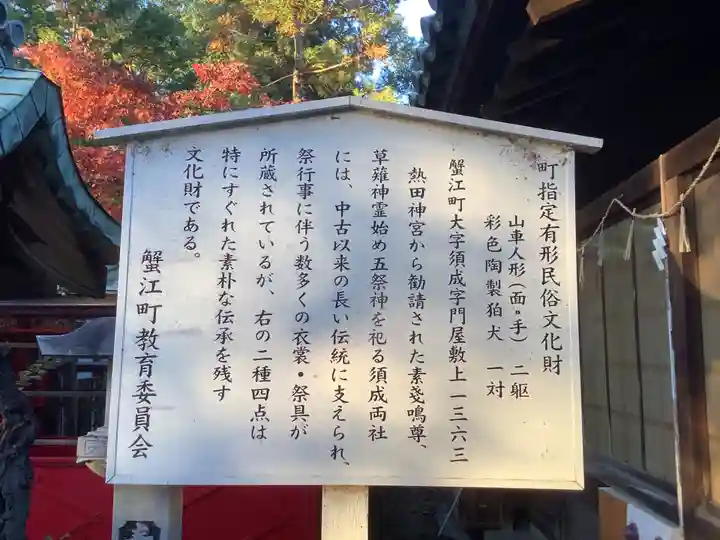 町指定有形民俗文化財
山車人形（面・手） 二躯
彩色陶製狛犬 一対
蟹江町大字須成字門屋敷上一三六三
熱田神宮から勧請された素戔鳴尊、
草薙神霊始め五祭神を祀る須成両社
には、中古以来の長い伝統に支えられ、
祭行事に伴う数多くの衣裳・祭具が
所蔵されているが、右の二種四点は
特にすぐれた素朴な伝承を残す
文化財である。
蟹江町教育委員会